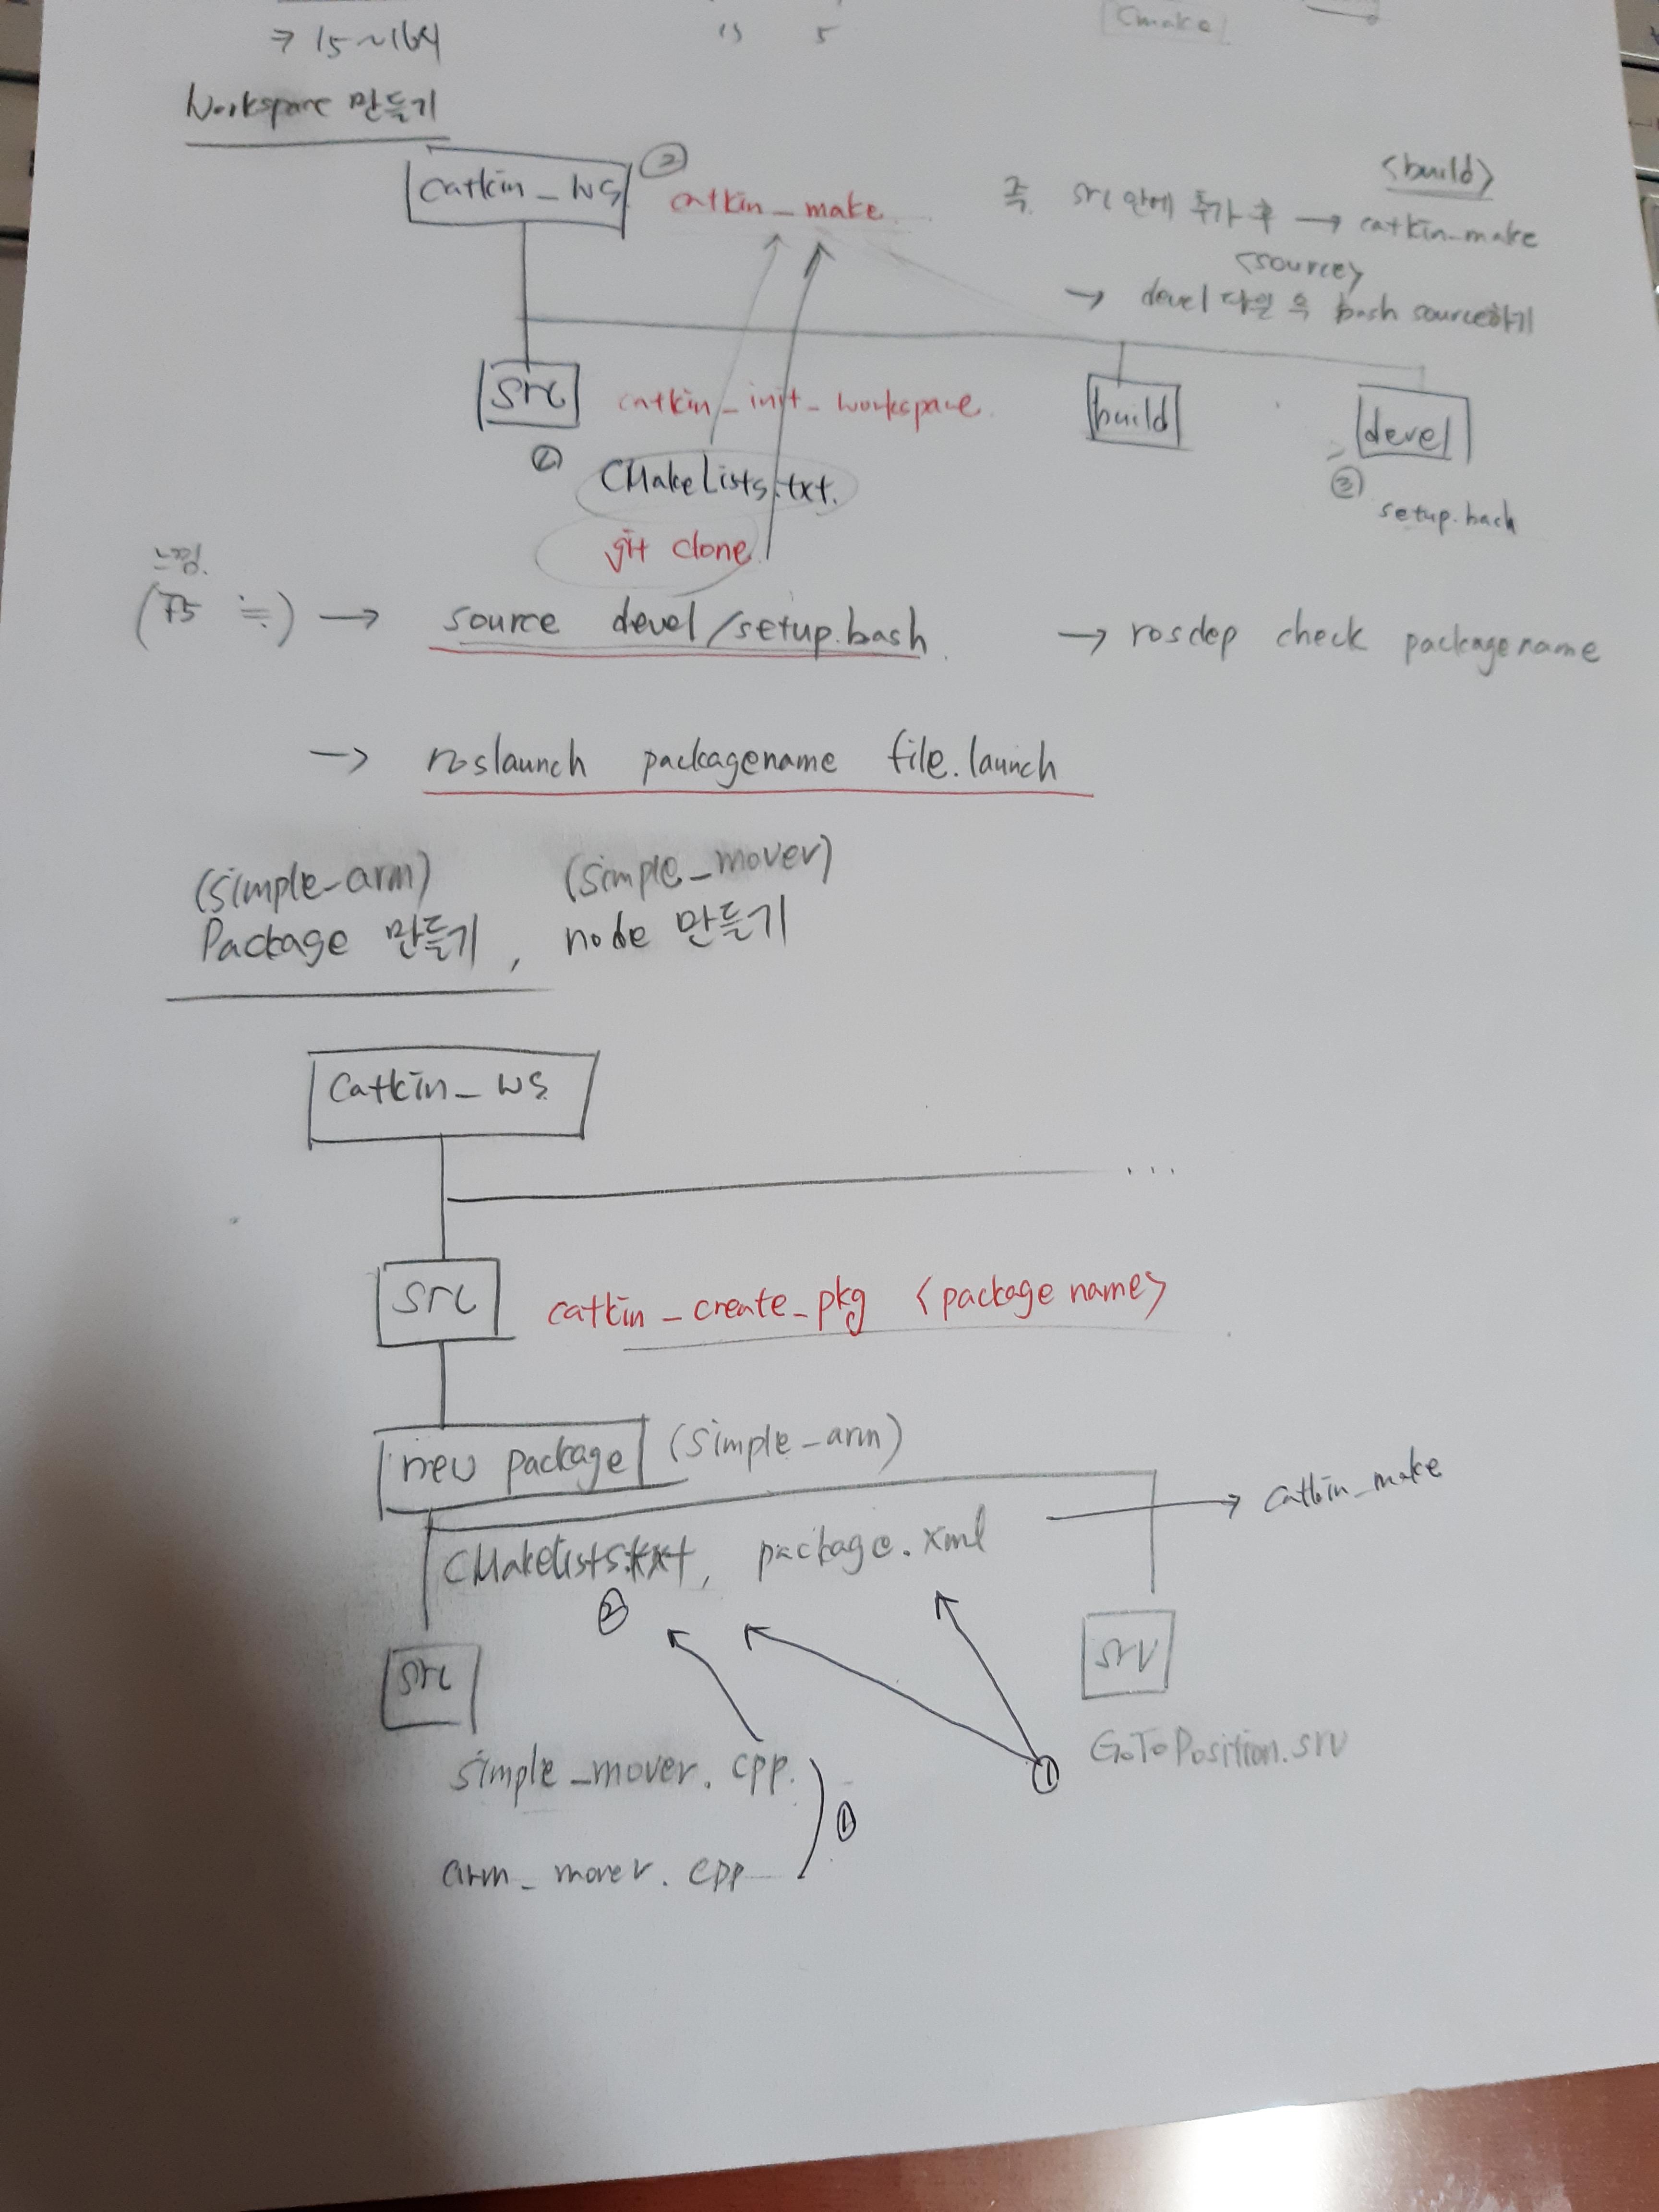 ⇒ 15~16시
13 5
Cmake
Workspace 만들기
catkin_ws ② catkin_make
즉. src 안에 추가 후 → catkin_make
<build>
<source>
→ devel 파일 속 bash source하기
src catkin_init_workspace.
build
devel
①
CMakeLists.txt.
③
setup.bash
git clone
느낌.
(F5 ≒) → source devel/setup.bash.
→ rosdep check packagename
→ roslaunch packagename file.launch
(simple_arm) (simple_mover)
Package 만들기, node 만들기
catkin_ws
...
src
catkin_create_pkg <package name>
new package (simple_arm)
CMakeLists.txt, package.xml → catkin_make
②
src
srv
simple_mover.cpp.
①
GoToPosition.srv
arm_mover.cpp
①